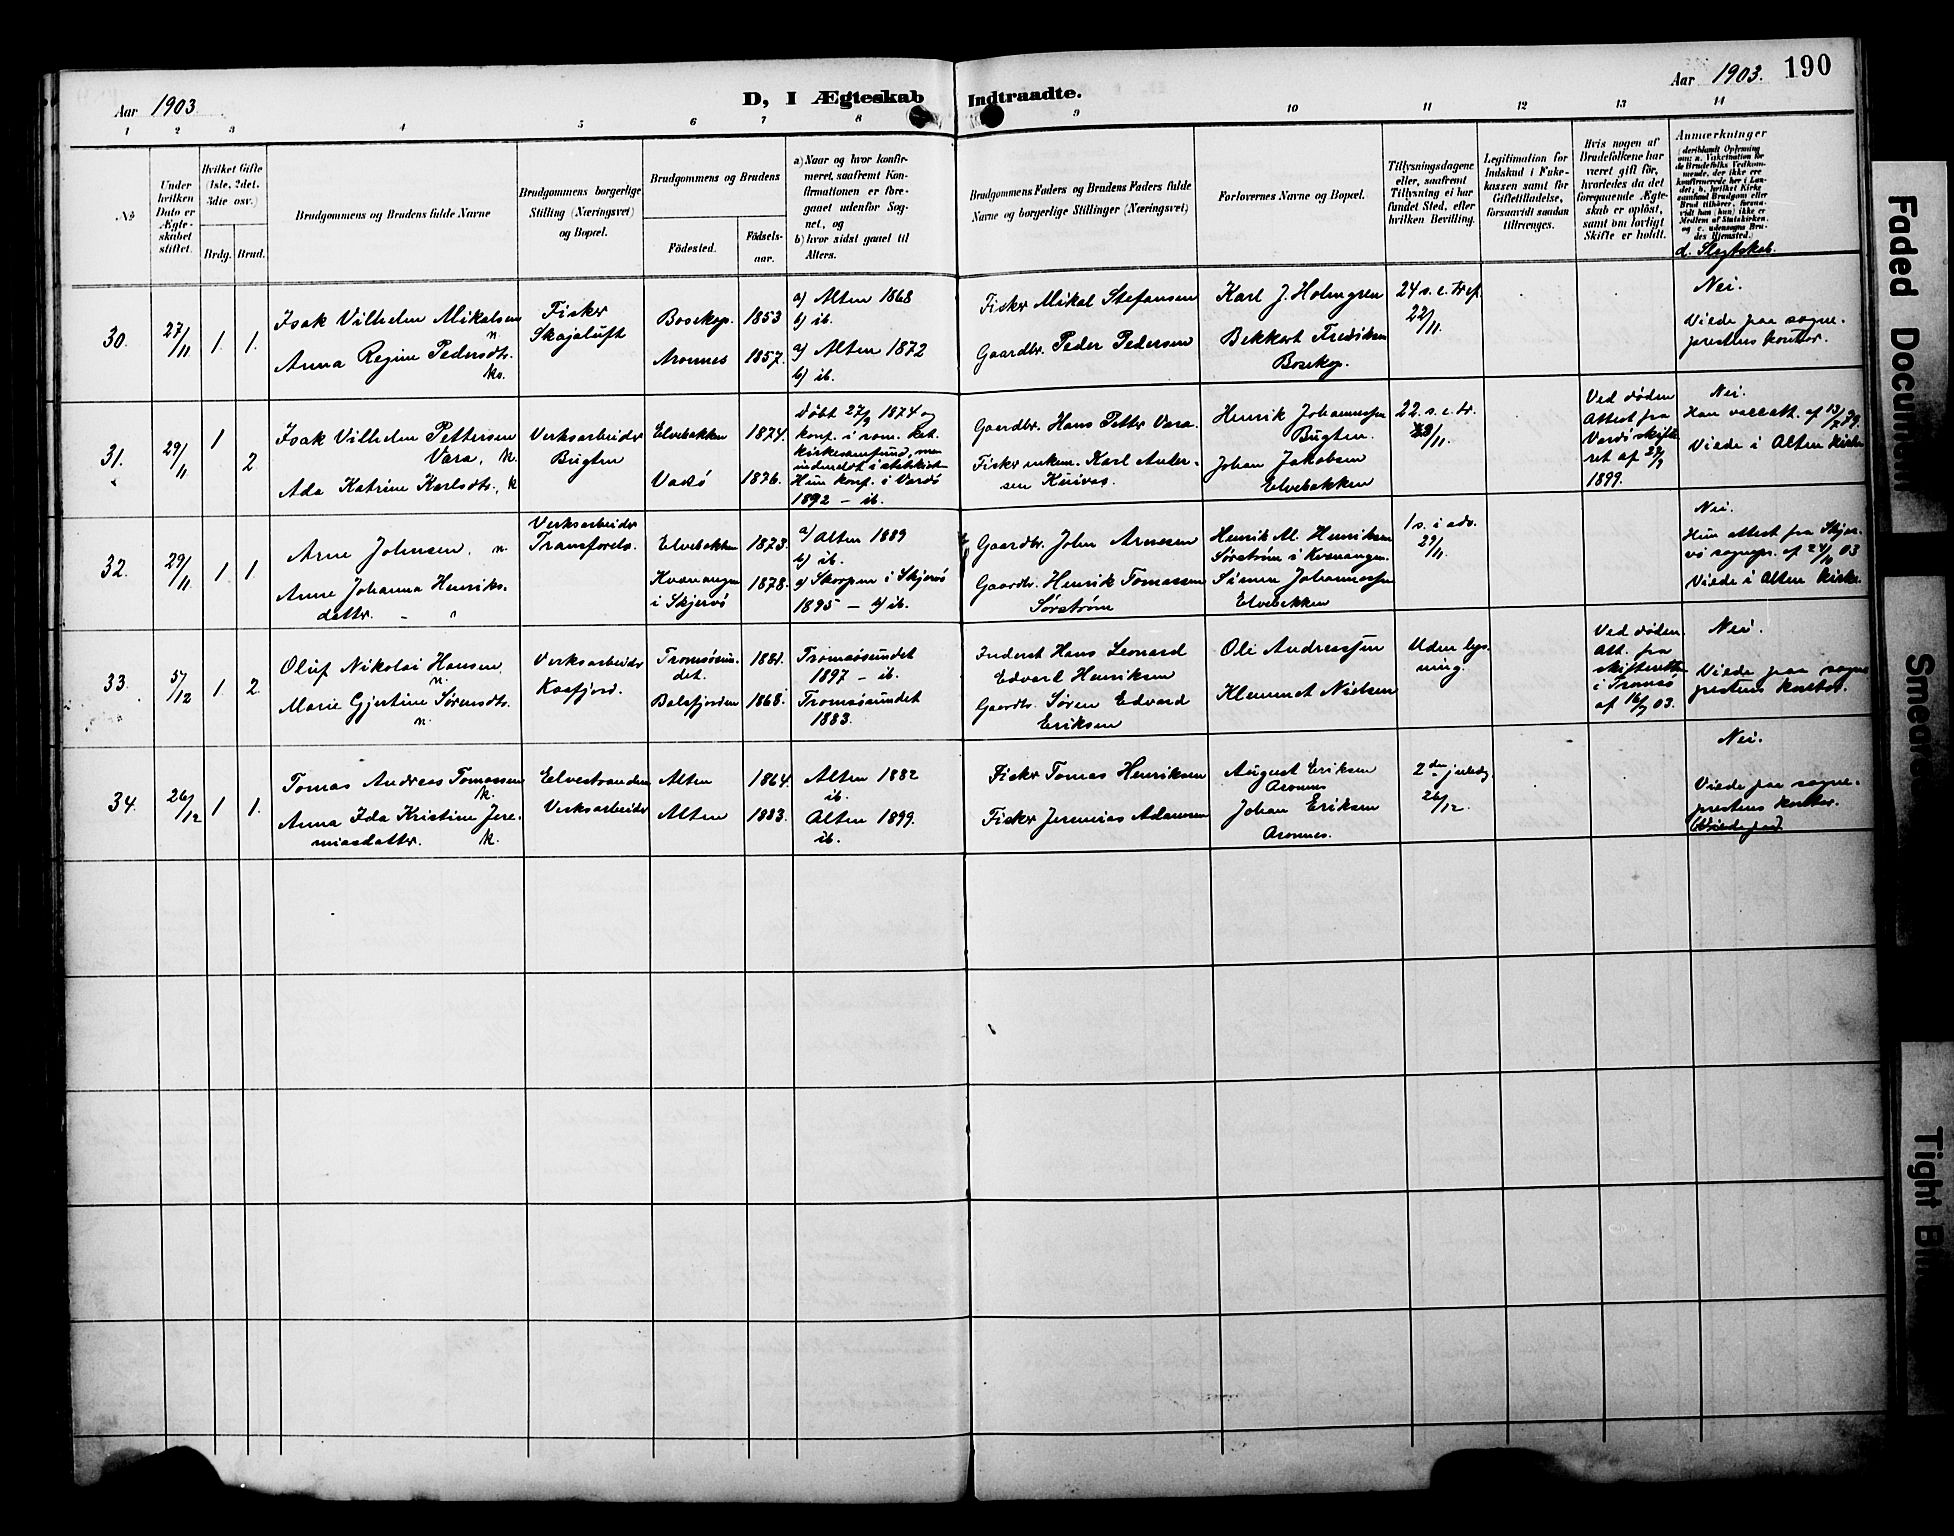 Aar 1903.
D, I Ægteskab Indtraadte.
Aar 1903.
190
1 2 3 4 5 6 7 8 9 10 11 12 13 14
No
Under
hvilken
Dato er
Ægte-
skabet
stiftet.
Hvilket Gifte
(1ste, 2det,
3die osv.)
Brdg. Brud.
Brudgommens og Brudens fulde Navne
Brudgommens borgerlige
Stilling (Næringsvei)
og Bopæl.
Brudgommens og Brudens
Födested.
Födsels-
aar.
a) Naar og hvor konfir-
meret, saafremt Kon-
firmationen er fore-
gaaet udenfor Sog-
net, og
b) hvor sidst gaaet til
Alters.
Brudgommens Faders og Brudens Faders fulde
Navne og borgerlige Stillinger (Næringsvei)
Forlovernes Navne og Bopæl.
Tillysningsdagene
eller, saafremt
Tillysning ei har
fundet Sted, efter
hvilken Bevilling.
Legitimation for
Indskud i Enke-
kassen samt for
Giftetilladelse,
forsaavidt saadan
tiltrænges.
Hvis nogen af
Brudefolkene har
været gift før,
hvorledes da det
foregaaende Ægte-
skab er opløst,
samt om lovligt
Skifte er holdt.
Anmærkninger
(deriblandt Oplysning
om: a. Vakcination for
de Brudefolks Vedkom-
mende, der ikke ere
konfirmerede her i Lan-
det; b. hvilket Kirke
samfund Brudgom eller
Brud tilhører, forsaa-
vidt han (hun) ikke er
Medlem af Statskirken,
og c. udensogns Bru-
des Hjemsted.)
d. Slegtskab.
30.
27/11
1. 1.
Isak Vilhelm Mikalsen
n.
Anna Regine Pedersdt.
kv.
Fisker
Skajaluft
Bosekop. 1853
Aronnes 1857.
a) Alten 1868
b) ib.
a) Alten 1872
b) ib.
Fisker Mikal Stefansen
Gaardbr. Peder Pedersen
Karl J. Holmgren
Bekkart Fredriksen
Bosekop.
24 s. e. tref.
22/11.
Nei.
Viede paa sogne-
prestens kontor.
31.
29/11
1 2
Isak Vilhelm Pettersen
Vara, k.
Ada Katrine Karlsdt., k
Verksarbeider
Bugten
Elvebakken 1874.
Vadsö 1876.
døbt 27/9 1874 og
konf. i rom. kat.
kirkesamfund, men
Hun konf. i Vardö
1892 – ib.
Gaardbr. Hans Petter Vara.
Fisker Karl Ander-
sen Kuivas.
Henrik Johannessen
Bugten.
Johan Jakobsen
Elvebakken
22. s. e. tr.
Ved døden
Attest fra
Vardö skifte
ret af
1899.
Nei.
Viede i Alten kirke
32.
29/11
1. 1.
Arne Johnsen, n.
Anne Johanna Henriks-
datter. – "
Verksarbeider
Transfarelv.
Elvebakken 1873.
Kvænangen
i Skjervö 1878.
a) Alten 1889
b) ib.
a) Skorpen i Skjervö
1895 – b) ib.
Gaardbr. John Arnesen
Gaardbr. Henrik Tomassen
Sørstrøm
Henrik M. Henriksen
Sørstrøm i Kvænangen.
Simen Johannessen
Elvebakken
1 s. i adv.
29/11.
Nei.
Hun attest fra Skjer-
vö sognepr. af 24/10 03
Viede i Alten kirke.
33.
5/12
1. 2.
Oluf Nikolai Hansen,
n.
Marie Gjertine Sørensdt.
n.
Verksarbeider
Kaafjord.
Tromsösun-
det. 1881.
Balsfjorden 1868.
Tromsösundet
1897 – ib.
Tromsösundet
1883.
Inderst Hans Leonard
Edvard Henriksen
Gaardbr. Søren Edvard
Eriksen
Ole Andreassen
Klemmet Nielsen
Uden lys-
ning.
Ved døden.
Att. fra
skifteretten
i Tromsö
af 16/9 03.
Nei.
Viede paa sogne
prestens kontor.
34.
26/12
1. 1.
Tomas Andreas Tomassen
k.
Anna Ida Kristine Jere-
miasdatter. k.
Elvestranden
Verksarbeider
Alten 1864.
Alten 1883.
Alten 1882
ib.
Alten 1899.
ib.
Fisker Tomas Henriksen
Fisker Jeremias Adamsen
August Eriksen
Aronnes
Johan Eriksen
Aronnes.
2den juledag.
26/12.
Nei.
Viede paa sogne-
prestens kontor.
(Viede paa)
Faded Document
Smeared
Tight Bin